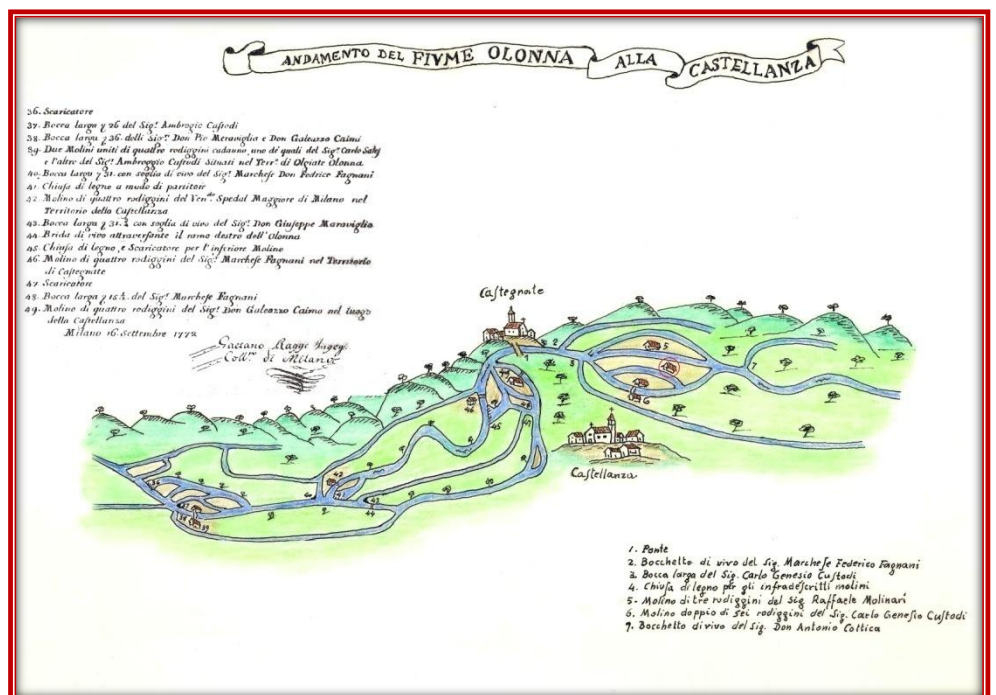 ANDAMENTO DEL FIVME OLONNA ALLA CASTELLANZA
36. Scaricatore
37. Bocca larga γ 26 del Sig.r Ambrogio Custodi
38. Bocca larga γ 36. delli Sig.ri Don Pio Meraviglia e Don Galeazzo Caimi
39. Due Molini uniti di quattro rodiggini cadauno, uno de' quali del Sig.r Carlo
e l'altro del Sig.r Ambroggio Custodi Situati nel Terr.o di Olgiate Olonna
40. Bocca larga γ 31. con soglia di vivo del Sig.r Marchese Don Fedrico Fagnani
41. Chiusa di legno a modo di partitore
42. Molino di quattro rodiggini del Ven.do Spedal Maggiore di Milano nel
Territorio della Castellanza
43. Bocca larga γ 31. con soglia di vivo del Sig.r Don Giuseppe Maraviglia
44. Brida di vivo attraversante il ramo destro dell'Olonna
45. Chiusa di legno, e Scaricatore per l'inferiore Molino
46. Molino di quattro rodiggini del Sig.r Marchese Fagnani nel Territorio
di Castegnate
47. Scaricatore
48. Bocca larga γ 15 del Sig.r Marchese Fagnani
49. Molino di quattro rodiggini del Sig.r Don Galeazzo Caimo nel luogo
della Castellanza
Milano 16. Settembre 1772
Gaetano Ragge
Coll.to di Milano
Castegnate
Castellanza
1. Ponte
2. Bocchetto di vivo del Sig. Marchese Federico Fagnani
3. Bocca larga del Sig. Carlo Genesio Custodi
4. Chiusa di legno per gli infradescritti molini
5- Molino di tre rodiggini del Sig. Raffaele Molinari
6. Molino doppio di sei rodiggini del Sig. Carlo Genesio Custodi
7. Bocchetto di vivo del Sig. Don Antonio Cottica